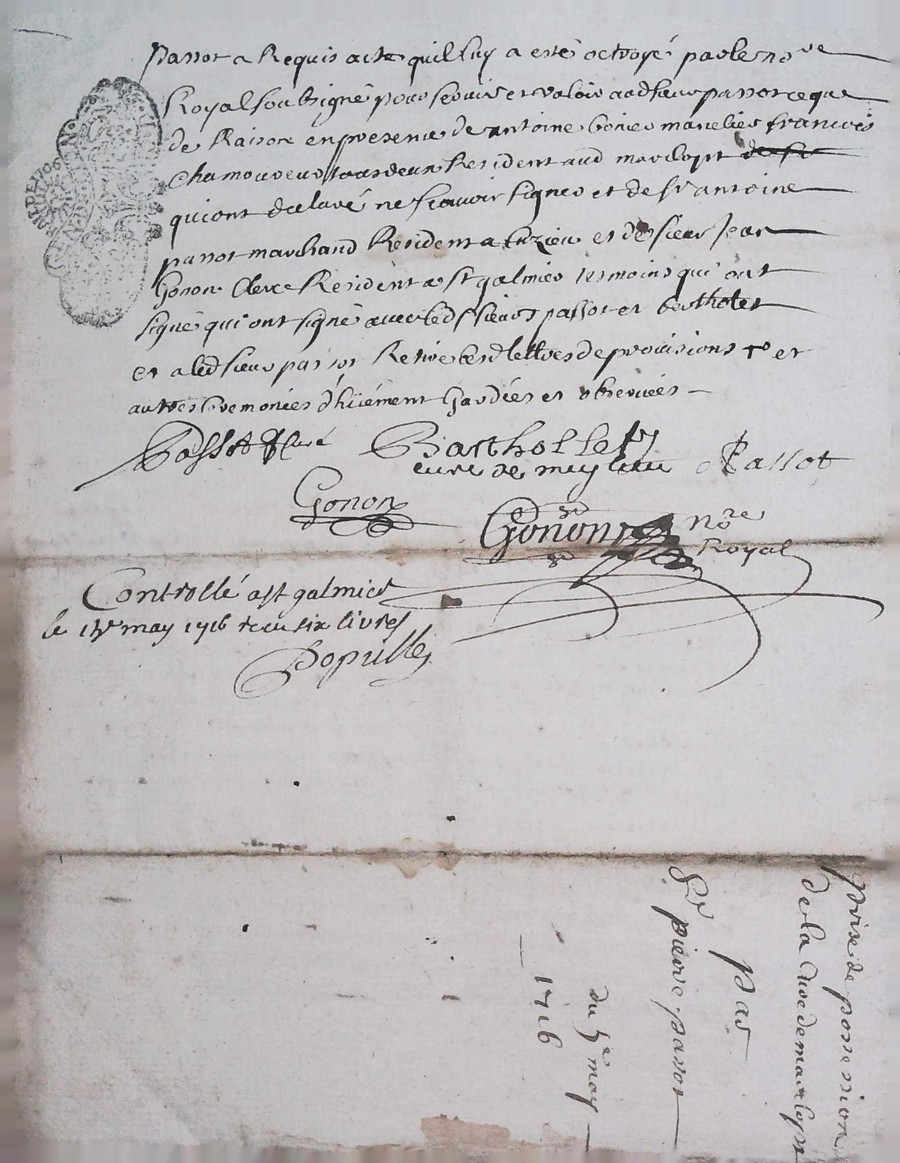 passot a Requis acte quil luy a esté octroyé par le nore
Royal soubsigné pour servir et valoir audsieur passot ce que
de Raison en presence de antoine mareschal françois
Resident aud marclopt
qui ont declaré ne sçavoir signer et de sr antoine
passot marchand Resident a Cuzieu et de sieur Jean
Gonon Clerc Resident a st galmier tesmoins qui ont
signé qui ont signé avec led sieurs passot et bertholet
et a led sieur passot Retiré lesd lettres de provisions et
autres Ceremonies d'huëment Gardées et observées
Passot Curé Barthollet
curé de meylieu Passot
Gonon
Gonon nore
Royal
Controllé a st galmier
le may 1716 receu six livres
Populle
prise de possession
de la Cure de marclopt
par
Sr pierre passot
du 5e may
1716